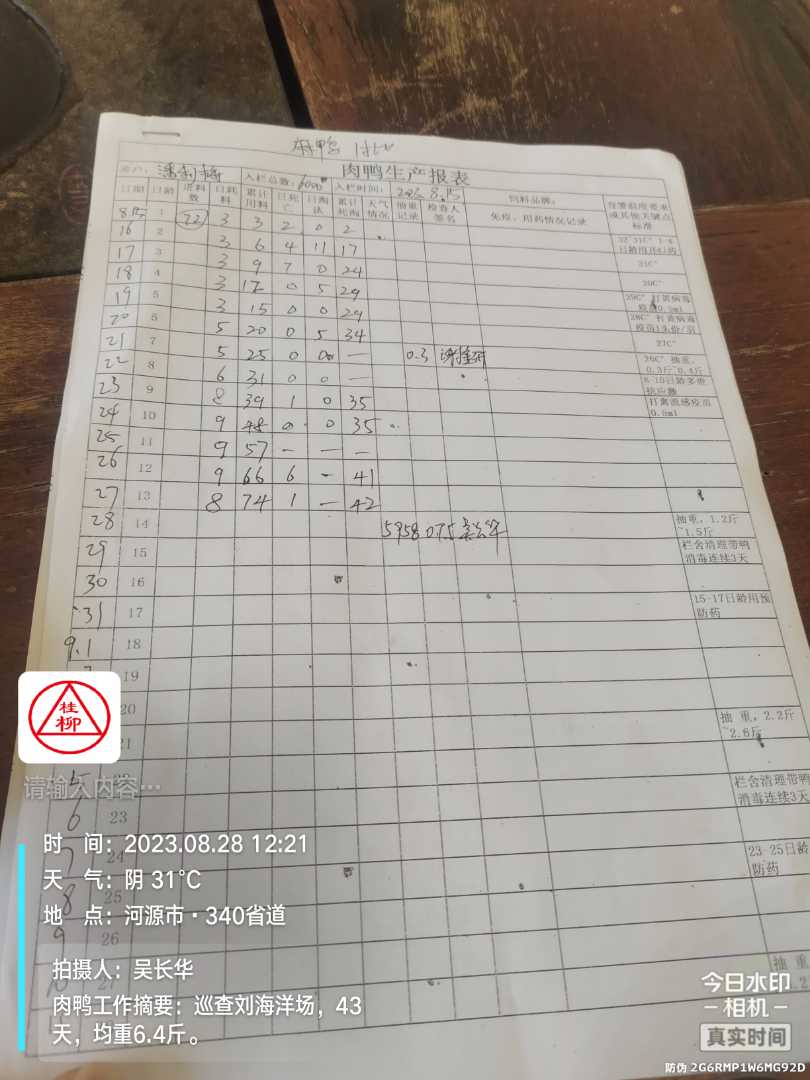 肉鸭生产报表
入栏总数: 6000 入栏时间: 2023.8.15
日期 日龄 进料数 日耗料 累计用料 日死亡 日淘汰 累计死淘 天气情况 抽重记录 检查人签名 饲料品牌: 免疫、用药情况记录 保温温度要求或其他关键点标准
8.15 1 22 3 3 2 0 2
16 2 3 6 4 11 17 32~31C° 1-4日龄用开口药
17 3 3 9 7 0 24 31C°
18 4 3 12 0 5 29 30C°
19 5 3 15 0 0 29 29C° 打黄病毒
20 6 5 20 0 5 34 28C°
21 7 5 25 0 00 — 0.3 27C°
22 8 6 31 0 0 — 26C° 抽重, 0.3斤~0.4斤
23 9 8 39 1 0 35 8-10日龄多带抗应激
24 10 9 48 0 0 35 打禽流感疫苗0.8ml
25 11 9 57 — — —
26 12 9 66 6 — 41
27 13 8 74 1 — 42
28 14 5958 0.75 抽重, 1.2斤~1.5斤
29 15 栏舍清理带鸭消毒连续3天
30 16
31 17 15-17日龄用预防药
9.1 18
19
20
21 抽 重, 2.2斤~2.6斤
5 22 栏舍清理带鸭消毒连续3天
6 23
7 24 23-25日龄
8 25 防药
9 26
10 27 抽 重
桂柳
请输入内容…
时 间: 2023.08.28 12:21
天 气: 阴 31℃
地 点: 河源市·340省道
拍摄人: 吴长华
肉鸭工作摘要: 巡查刘海洋场, 43
天, 均重6.4斤。
今日水印
相机
真实时间
防伪 2G6RMP1W6MG92D